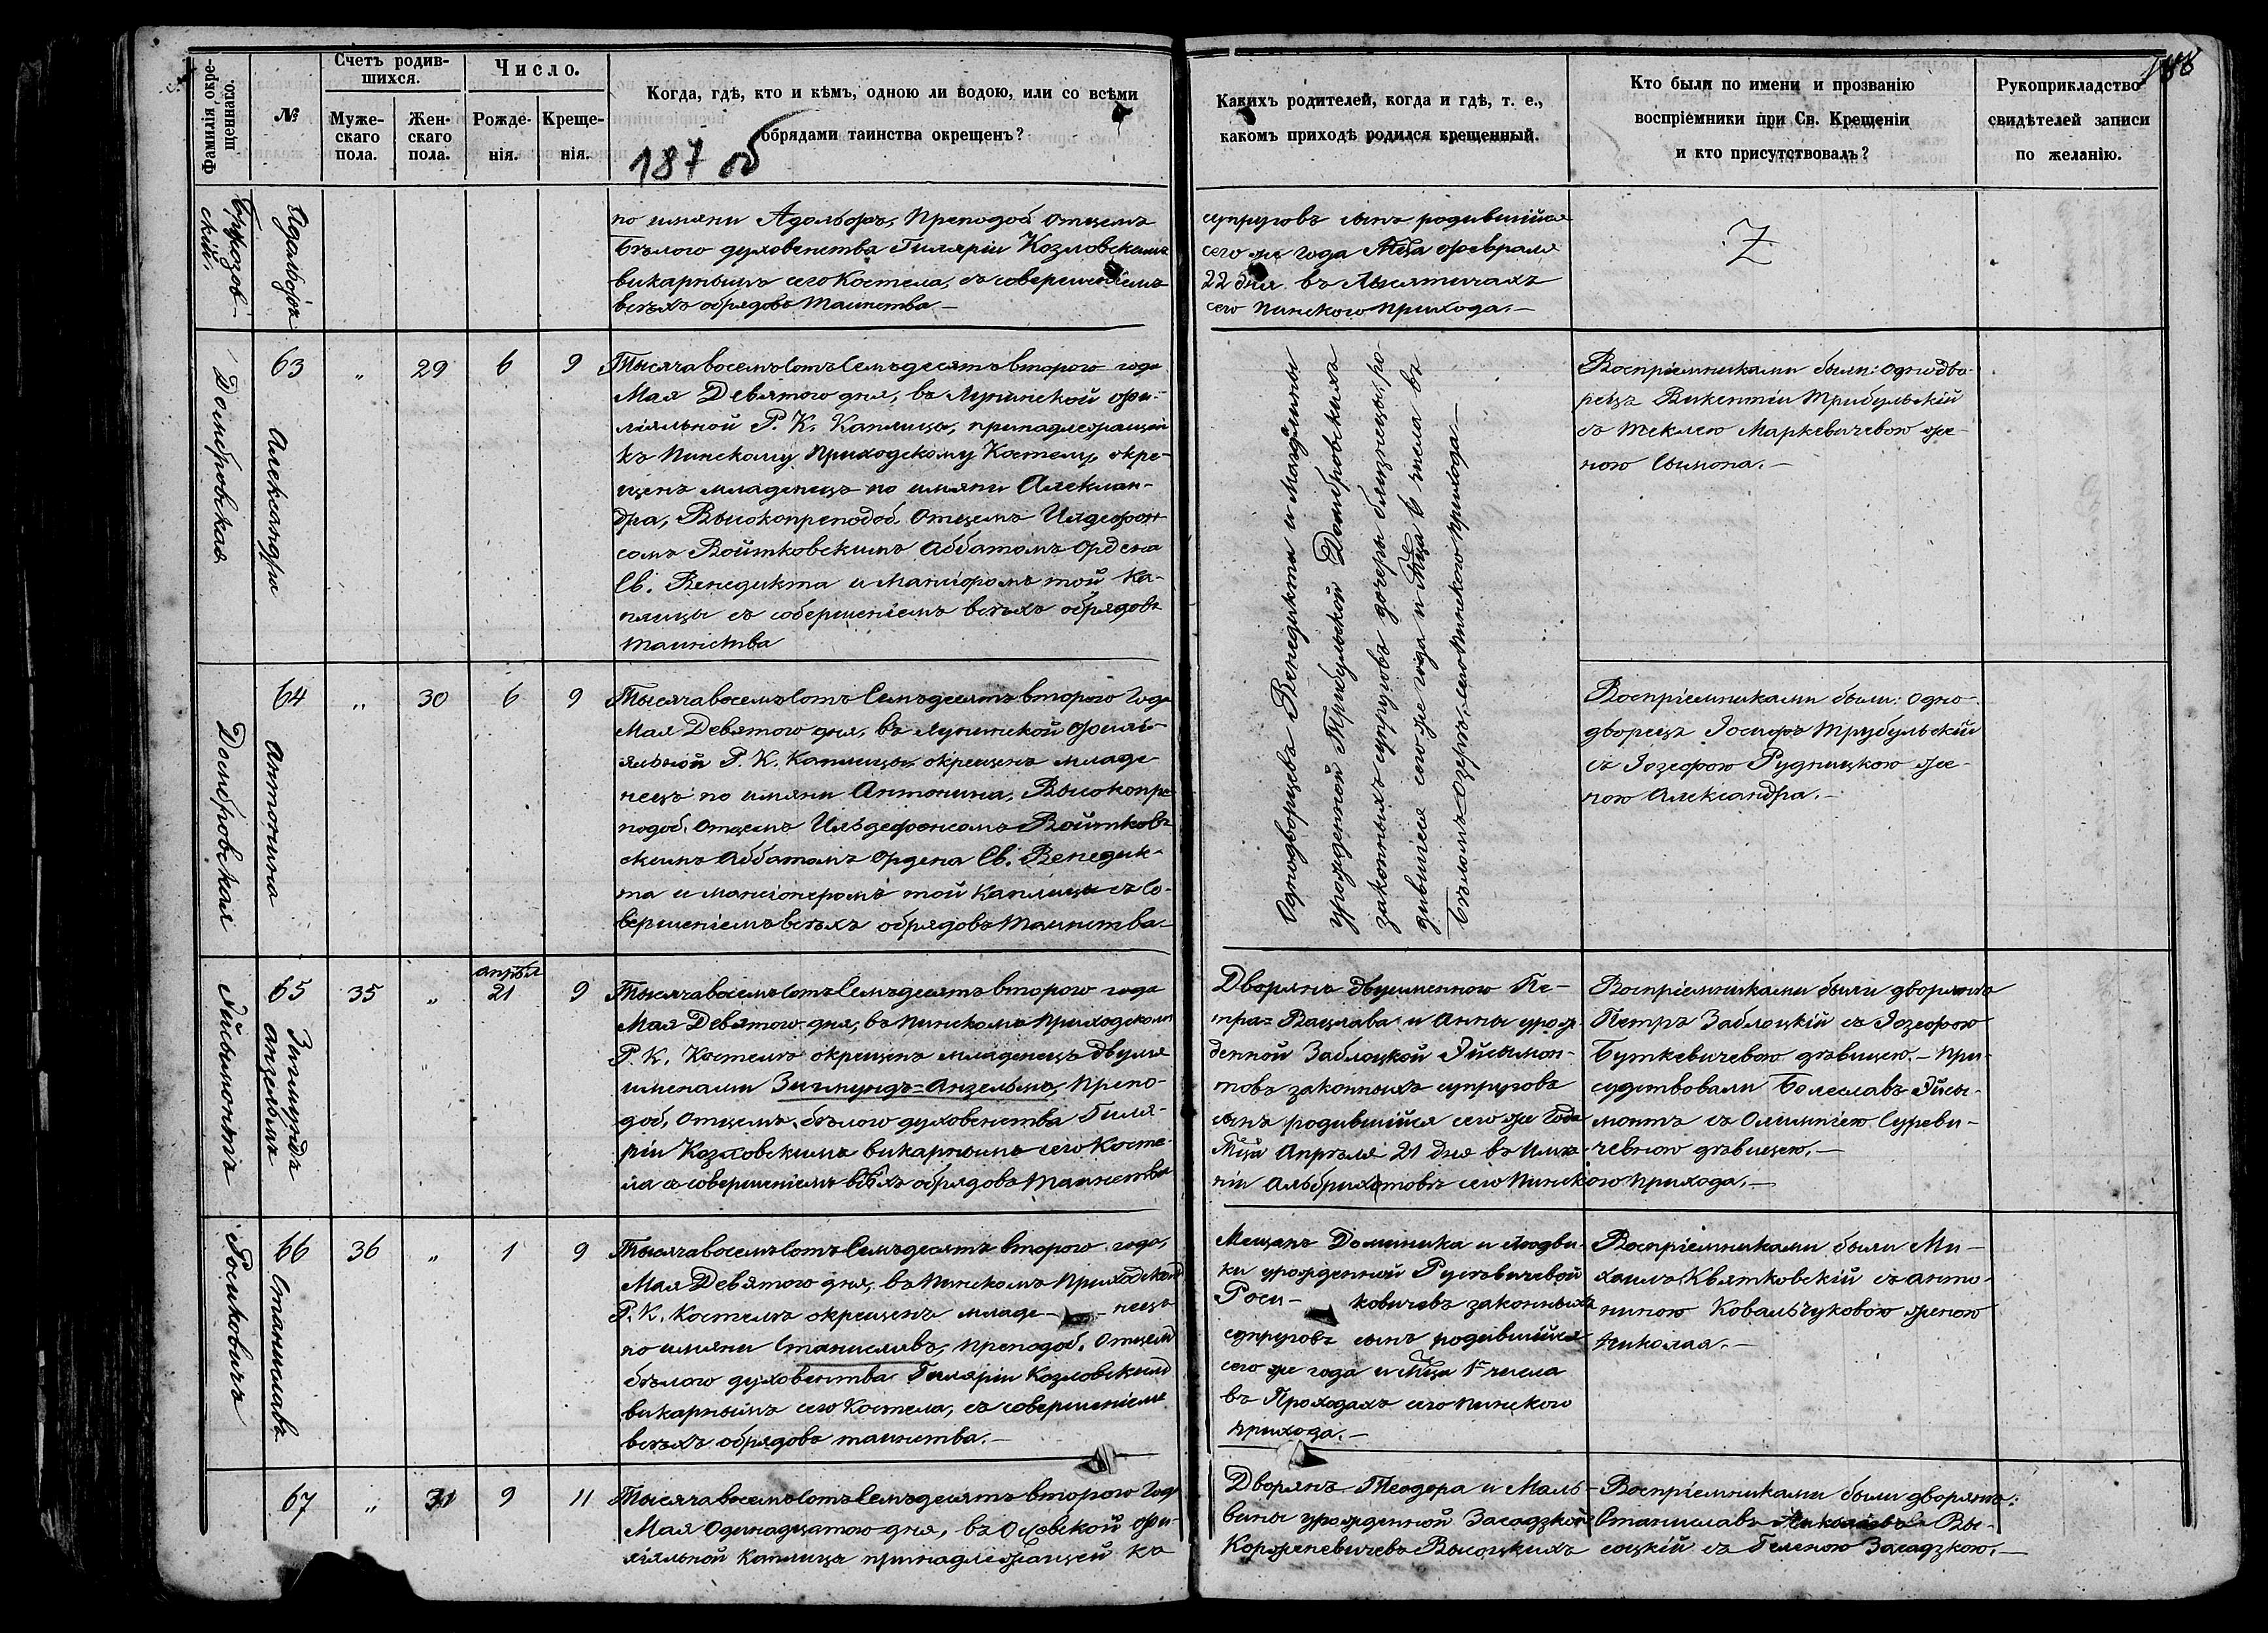 188
Фамилія окрещеннаго.
№
Счетъ родившихся.
Мужескаго пола.
Женскаго пола.
Число.
Рожденія.
Крещенія.
Когда, гдѣ, кто и кѣмъ, одною ли водою, или со всѣми
обрядами таинства окрещенъ?
187 об
Какихъ родителей, когда и гдѣ, т. е.,
какомъ приходѣ родился крещенный.
Кто были по имени и прозванію
воспріемники при Св. Крещеніи
и кто присутствовалъ?
Рукоприкладство
свидѣтелей записи
по желанію.
Адольфъ
по имяни Адольфъ, Преподоб Отцемъ
Бѣлого духовенства Гиляріи Козловскимъ
викарнымъ сего Костела, съ совершеніемъ
всѣхъ обрядовъ Таинства —
супруговъ сынъ родившійся
сего же года Мца февраля
22 дня въ
сего Пинского прихода. —
Z
Домбровская
63
Александра
„
29
6
9
Тысяча восемъ Сотъ Семъдесятъ второго года
Мая Девятого дня, въ Лунинской фи-
ліяльной Р. К. Каплицы, принадлежащей
къ Пинскому Приходскому Костелу, окре-
щенъ младенецъ по имяни Алексан-
дра, Высокопреподоб. Отцемъ Ильдефон
сомъ Войтковскимъ Аббатомъ Ордена
Св. Венедикта и Мансіоромъ той Ка-
плицы съ совершеніемъ всѣхъ обрядовъ
Таинства
Однодворцевъ Венедикта и Магдалины
урожденной Трибульской Домбровскихъ
законныхъ супруговъ дочеры близнецы, ро-
дившіеся сего же года и Мца 6 числа въ
Бѣломъ-Озерѣ, сего Пинского прихода —
Воспріемниками были: однодво-
рецъ Викентіи Трибульскій
съ Теклею Маркевичевою же-
ною Сымона. —
Домбровская
64
Антонина
„
30
6
9
Тысяча восемъ Сотъ Семъдесятъ второго Года
Мая Девятого дня, въ Лунинской филі-
яльной Р. К. Каплицы, окрещенъ младе
нецъ по имяни Антонина, Высокопре
подоб. Отцемъ Ильдефонсомъ Войтков
скимъ Аббатомъ Ордена Св. Венедик-
та и Мансіонеромъ той Каплицы съ Со-
вершеніемъ всѣхъ обрядовъ Таинства —
Воспріемниками были: Одно-
дворецъ Іосифъ Трубульскій
съ Іозефою Рудницкою же-
ною Александра. —
Эйсымонтъ
65
Зигмундъ
Анзельмъ
35
„
апрѣл
21
9
Тысяча восемъ Сотъ Семъдесятъ второго года
Мая Девятого дня, въ Пинскомъ Приходскомъ
Р. К. Костелѣ окрещенъ младенецъ двумя
именами Зигмундъ=Анзельмъ, Препо-
доб. Отцемъ бѣлого духовенства Гиля-
ріи Козловскимъ викарнымъ сего Косте-
ла съ совершеніемъ всѣхъ обрядовъ Таинства
Дворянъ двуименного Пе-
тра=Вацлава и Анны урож
денной Заблоцкой Эйсымон-
товъ законныхъ супруговъ
сынъ родившійся сего же Года
Мца Апрѣля 21 дня въ Имѣ-
ніи Альбрихтовѣ сего Пинского прихода. —
Воспріемниками были дворяне
Петръ Заблоцкій съ Іозефою
Буткевичевою дѣвицею. — При-
судствовали Болеславъ Эйсы-
монтъ съ Олимпіею Суреви-
чевною дѣвицею. —
Росиковичъ
66
Станиславъ
36
„
1
9
Тысяча восемъ Сотъ Семъдесятъ второго года,
Мая Девятого дня, въ Пинскомъ Приходскомъ
Р. К. Костелѣ окрещенъ младе- - нецъ
по имяни Станиславъ, преподоб. Отцемъ
бѣлого духовенства Гиляріи Козловскимъ
викарнымъ сего Костела, съ совершеніемъ
всѣхъ обрядовъ таинства. —
Мещанъ Доминика и Людви-
ки урожденной Русевичевой
Роси- ковичевъ законныхъ
супруговъ сынъ родившійся
сего же года и Мца 1го числа
въ Проходахъ сего Пинского
прихода. —
Воспріемниками были Ми-
хаилъ Квятковскій съ Анто-
ниною Ковальчуковою женою
Николая. —
67
„
31
9
11
Тысяча восемъ Сотъ Семъдесятъ второго Года
Мая Одинадцатого дня, въ фи-
ліяльной Каплицы принадлежащей къ
Дворянъ Теодора и Маль-
вины урожденной Засадзкой
Корженевичевъ Высоцкихъ
Воспріемниками были дворяне:
Станиславъ Вы-
соцкій съ Геленою Засадзкою. —